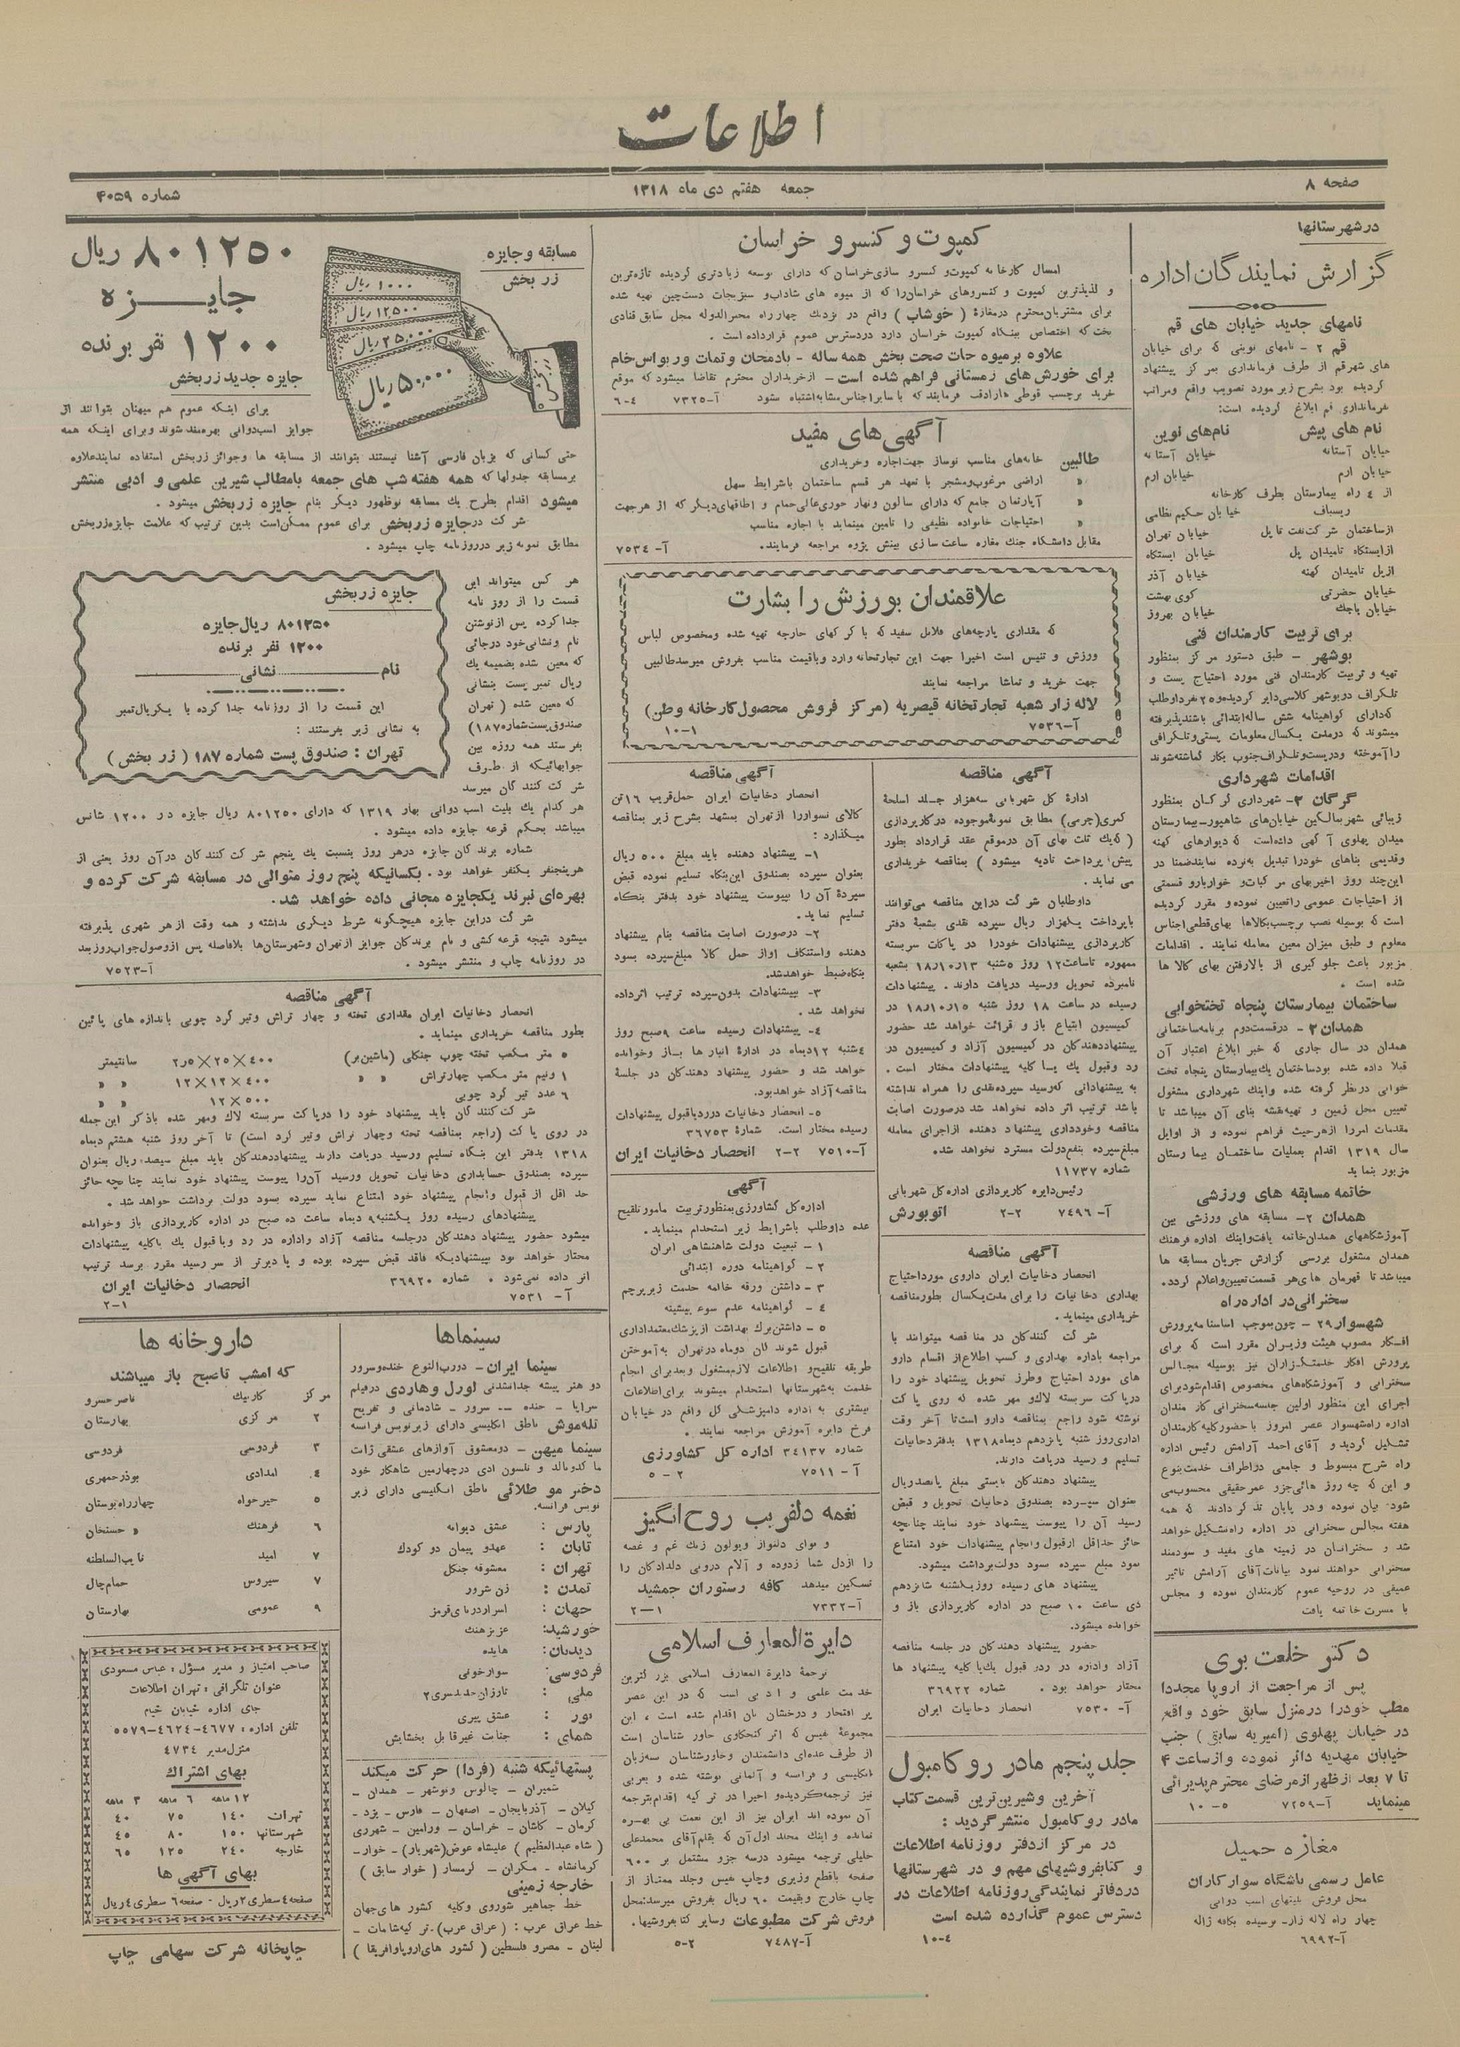 اطلاعات
صفحه ۸
جمعه هفتم دی ماه ۱۳۱۸
شماره ۴۰۵۹
در شهرستانها
گزارش نمایندگان اداره
نامهای جدید خیابان های قم
قم ۲ - نامهای نوینی که برای خیابان
های شهر قم از طرف فرمانداری بمرکز پیشنهاد
گردیده بود بشرح زیر مورد تصویب واقع ومراتب
بفرمانداری قم ابلاغ گردیده است:
نام های پیش نام‌های نوین
خیابان آستانه خیابان آستانه
خیابان ارم خیابان ارم
از ٤ راه بیمارستان بطرف کارخانه
ریسباف خیابان حکیم نظامی
از ساختمان شرکت نفت تا پل خیابان تهران
از ایستگاه تا میدان پل خیابان ایستگاه
از پل تا میدان کهنه خیابان آذر
خیابان حضرتی کوی بهشت
خیابان باجک خیابان بهروز
برای تربیت کارمندان فنی
بوشهر - طبق دستور مرکز بمنظور
تهیه و تربیت کارمندان فنی مورد احتیاج پست و
تلگراف در بوشهر کلاسی دایر گردیده و ۲۵ نفر داوطلب
که دارای گواهینامه شش ساله ابتدائی باشند پذیرفته
میشوند که در مدت یکسال معلومات پستی و تلگرافی
را آموخته و در پست و تلگراف جنوب بکار گماشته شوند
اقدامات شهرداری
گرگان ۳- شهرداری گرگان بمنظور
زیبائی شهر بمالکین خیابان‌های شاهپور - بیمارستان
میدان پهلوی آگهی داده است که دیوارهای کهنه
وقدیمی بناهای خود را تبدیل به نرده نمایند ضمنا در
این چند روز اخیر بهای مرکبات و خواربار و قسمتی
از احتیاجات عمومی را تعیین نموده و مقرر گردیده
است که بوسیله نصب برچسب بکالاها بهای قطعی اجناس
معلوم و طبق میزان معین معامله نمایند . اقدامات
مزبور باعث جلوگیری از بالارفتن بهای کالا ها
شده است .
ساختمان بیمارستان پنجاه تختخوابی
همدان ۲ - در قسمت دوم برنامه ساختمانی
همدان در سال جاری که خبر ابلاغ اعتبار آن
قبلا داده شده بود ساختمان یک بیمارستان پنجاه تخت
خوابی در نظر گرفته شده و اینک شهرداری مشغول
تعیین محل زمین و تهیه نقشه بنای آن میباشد تا
مقدمات امر را از هر حیث فراهم نموده و از اوایل
سال ۱۳۱۹ اقدام بعملیات ساختمان بیمارستان
مزبور بنماید
خاتمه مسابقه های ورزشی
همدان ۲- مسابقه های ورزشی بین
آموزشگاههای همدان خاتمه یافت و اینک اداره فرهنگ
همدان مشغول بررسی گزارش جریان مسابقه ها
میباشد تا قهرمان های هر قسمت تعیین و اعلام گردد.
سخنرانی در اداره راه
شهسوار ۲۹ - چون بموجب اساسنامه پرورش
افکار مصوب هیئت وزیران مقرر است که برای
پرورش افکار خدمتگزاران نیز بوسیله مجالس
سخنرانی و آموزشگاه‌های مخصوص اقدام شود برای
اجرای این منظور اولین جلسه سخنرانی کارمندان
اداره راه شهسوار عصر امروز با حضور کلیه کارمندان
تشکیل گردید و آقای احمد آرامش رئیس اداره
راه شرح مبسوط و جامعی در اطراف خدمت بنوع
و این که چه روز هائی جزو عمر حقیقی محسوب می
شود بیان نموده و در پایان تذکر دادند که همه
هفته مجالس سخنرانی در اداره راه تشکیل خواهد
شد و سخنرانان در زمینه های مفید و سودمند
سخنرانی خواهند نمود بیانات آقای آرامش تاثیر
عمیقی در روحیه عموم کارمندان نموده و مجلس
با مسرت خاتمه یافت
دکتر خلعت بری
پس از مراجعت از اروپا مجددا
مطب خود را در منزل سابق خود واقع
در خیابان پهلوی (امیریه سابق) جنب
خیابان مهدیه دائر نموده و از ساعت ٤
تا ۷ بعد از ظهر از مرضای محترم پذیرائی
مینماید آ-۷۲۵۹ ۵-۱۰
مغازه حمید
عامل رسمی باشگاه سوارکاران
محل فروش بلیتهای اسب دوانی
چهار راه لاله زار- نرسیده بکافه ژاله
آ-٦۹۹۲
کمپوت و کنسرو خراسان
امسال کارخانه کمپوت و کنسرو سازی خراسان که دارای توسعه زیادتری گردیده تازه‌ترین
و لذیذترین کمپوت و کنسروهای خراسان را که از میوه های شاداب و سبزیجات دست‌چین تهیه شده
برای مشتریان محترم در مغازهٔ (خوشاب) واقع در نزدیک چهار راه مخبرالدوله محل سابق قنادی
بخت که اختصاص ببنگاه کمپوت خراسان دارد در دسترس عموم قرار داده است .
علاوه بر میوه جات صحت بخش همه ساله - بادمجان و تمات و رب و اس خام
برای خورش های زمستانی فراهم شده است - از خریداران محترم تقاضا میشود که موقع
خرید برچسب قوطی ها را دقت فرمایند که با سایر اجناس مشابه اشتباه نشود آ-۷۳۲۵ ٤-٦
آگهی‌های مفید
طالبین خانه‌های مناسب نوساز جهت اجاره و خریداری
» اراضی مرغوب و مشجر با تعهد هر قسم ساختمان با شرایط سهل
» آپارتمان جامع که دارای سالون و نهار خوری عالی حمام و اطاقهای دیگر که از هر جهت
» احتیاجات خانواده نظیفی را تامین مینماید با اجاره مناسب
مقابل دانشگاه جنگ مغازه ساعت سازی بینش پژوه مراجعه فرمایند. آ-۷۵۳٤
علاقمندان بورزش را بشارت
که مقداری پارچه‌های فلانل سفید که با کرکهای خارجه تهیه شده و مخصوص لباس
ورزش و تنیس است اخیرا جهت این تجارتخانه وارد و باقیمت مناسب بفروش میرسد طالبین
جهت خرید و تماشا مراجعه نمایند
لاله زار شعبه تجارتخانه قیصریه (مرکز فروش محصول کارخانه وطن)
آ-۷۵۳٦ ۱-۱۰
آگهی مناقصه
ادارهٔ کل شهربانی سه هزار جلد اسلحهٔ
کمری (چرمی) مطابق نمونهٔ موجوده در کارپردازی
( که یک ثلث بهای آن در موقع عقد قرارداد بطور
پیش پرداخت تادیه میشود ) بمناقصه خریداری
می نماید .
داوطلبان شرکت در این مناقصه می‌توانند
با پرداخت یکهزار ریال سپرده نقدی بشعبهٔ دفتر
کارپردازی پیشنهادات خود را در پاکت سربسته
ممهوره تا ساعت ۱۲ روز ۵ شنبه ۱۸/۱۰/۱۳ بشعبه
نامبرده تحویل و رسید دریافت دارند . پیشنهادات
رسیده در ساعت ۱۸ روز شنبه ۱۸/۱۰/۱۵ در
کمیسیون ابتیاع باز و قرائت خواهد شد حضور
پیشنهاد دهندگان در کمیسیون آزاد و کمیسیون در
رد و قبول یک یا کلیه پیشنهادات مختار است .
به پیشنهاداتی که رسید سپرده نقدی را همراه نداشته
باشد ترتیب اثر داده نخواهد شد در صورت اصابت
مناقصه و خودداری پیشنهاد دهنده از اجرای معامله
مبلغ سپرده بنفع دولت مسترد نخواهد شد.
شماره ۱۱۷۳۷
رئیس دایره کارپردازی اداره کل شهربانی
آ-۷٤۹٦ ۲-۲ اتوبورش
آگهی مناقصه
انحصار دخانیات ایران داروی مورد احتیاج
بهداری دخانیات را برای مدت یکسال بطور مناقصه
خریداری مینماید .
شرکت کنندگان در مناقصه میتوانند با
مراجعه باداره بهداری و کسب اطلاع از اقسام دارو
های مورد احتیاج و طرز تحویل پیشنهاد خود را
در پاکت سربسته لاک و مهر شده که روی پاکت
نوشته شود راجع بمناقصه دارو است تا آخر وقت
اداری روز شنبه پانزدهم دیماه ۱۳۱۸ بدفتر دخانیات
تسلیم و رسید دریافت دارند.
پیشنهاد دهندگان بایستی مبلغ پانصد ریال
بعنوان سپرده بصندوق دخانیات تحویل و قبض
رسید آن را پیوست پیشنهاد خود نمایند چنانچه
حائز حداقل از قبول و انجام پیشنهادات خود امتناع
نمود مبلغ سپرده بسود دولت برداشت میشود.
پیشنهاد های رسیده روز یکشنبه شانزدهم
دی ساعت ۱۰ صبح در اداره کارپردازی باز و
خوانده میشود.
حضور پیشنهاد دهندگان در جلسه مناقصه
آزاد و اداره در رد و قبول یک یا کلیه پیشنهاد ها
مختار خواهد بود . شماره ۳٦۹۲۲
آ-۷۵۳۰ انحصار دخانیات ایران
جلد پنجم مادر روکامبول
آخرین و شیرین‌ترین قسمت کتاب
مادر روکامبول منتشر گردید :
در مرکز از دفتر روزنامه اطلاعات
و کتابفروشیهای مهم و در شهرستانها
در دفاتر نمایندگی روزنامه اطلاعات در
دسترس عموم گذارده شده است
٤-۱۰
آگهی مناقصه
انحصار دخانیات ایران حمل قریب ۱٦ تن
کالای نسواور را از تهران بمشهد بشرح زیر بمناقصه
میگذارد :
۱- پیشنهاد دهنده باید مبلغ ۵۰۰ ریال
بعنوان سپرده بصندوق این بنگاه تسلیم نموده قبض
سپردهٔ آن را بپیوست پیشنهاد خود بدفتر بنگاه
تسلیم نماید.
۲- در صورت اصابت مناقصه بنام پیشنهاد
دهنده و استنکاف او از حمل کالا مبلغ سپرده بسود
بنگاه ضبط خواهد شد.
۳- بپیشنهادات بدون سپرده ترتیب اثر داده
نخواهد شد .
٤- پیشنهادات رسیده ساعت ۹ صبح روز
٤ شنبه ۱۲ دیماه در ادارهٔ انبار ها باز و خوانده
خواهد شد و حضور پیشنهاد دهندگان در جلسهٔ
مناقصه آزاد خواهد بود.
۵- انحصار دخانیات در رد یا قبول پیشنهادات
رسیده مختار است. شمارهٔ ۳٦۷۵۳
آ-۷۵۱۰ ۲-۲ انحصار دخانیات ایران
آگهی
اداره کل کشاورزی بمنظور تربیت مامور تلقیح
عده داوطلب با شرایط زیر استخدام مینماید.
۱ - تبعیت دولت شاهنشاهی ایران
۲ - گواهینامه دوره ابتدائی
۳ - داشتن ورقه خاتمه خدمت زیر پرچم
٤ - گواهینامه عدم سوء پیشینه
۵ - داشتن برگ بهداشت از پزشک معتمد اداری
قبول شوندگان دوماه در تهران به آموختن
طریقه تلقیح و اطلاعات لازم مشغول و بعد برای انجام
خدمت به شهرستانها استخدام میشوند برای اطلاعات
بیشتری به اداره دامپزشکی کل واقع در خیابان
فرخ دایره آموزش مراجعه نمایند .
شماره ۳٤۱۳۷ اداره کل کشاورزی
آ-۷۵۱۱ ۲-۵
نغمه دلفریب روح انگیز
و نوای دلنواز ویولون زنگ غم و غصه
را از دل شما زدوده و آلام درونی دلدادگان را
تسکین میدهد کافه رستوران جمشید
آ-۷۳۳۲ ۱-۲
دایرة المعارف اسلامی
ترجمهٔ دایرة المعارف اسلامی بزرگترین
خدمت علمی و ادبی است که در این عصر
پر افتخار و درخشان بآن اقدام شده است ، این
مجموعهٔ نفیس که اثر کنجکاوی خاور شناسان است
از طرف عده‌ای دانشمندان و خاورشناسان به سه زبان
انگلیسی و فرانسه و آلمانی نوشته شده و بعربی
نیز ترجمه گردیده و اخیرا در ترکیه اقدام بترجمه
آن نموده اند ایران نیز از این نعمت بی بهره
نمانده و اینک مجلد اول آن که بقلم آقای محمدعلی
خلیلی ترجمه میشود در سه جزو مشتمل بر ٦۰۰
صفحه با قطع وزیری و چاپ نفیس و جلد ممتاز از
چاپ خارج و بقیمت ٦۰ ریال بفروش میرسد: محل
فروش شرکت مطبوعات و سایر کتابفروشیها.
آ-۷٤۸۷ ۲-۵
مسابقه و جایزه
زر بخش
۱۰۰۰ ریال
۱۲۵۰۰ ریال
۲۵۰۰۰ ریال
۵۰،۰۰۰ ریال
زربخش
۸۰۱۲۵۰ ریال
جایزه
۱۲۰۰ نفر برنده
جایزه جدید زربخش
برای اینکه عموم هم میهنان بتوانند از
جوایز اسب‌دوانی بهره‌مند شوند و برای اینکه همه
حتی کسانی که بزبان فارسی آشنا نیستند بتوانند از مسابقه ها و جوائز زربخش استفاده نمایند علاوه
بر مسابقه جدولها که همه هفته شب های جمعه با مطالب شیرین علمی و ادبی منتشر
میشود اقدام بطرح یک مسابقه نوظهور دیگر بنام جایزه زربخش میشود .
شرکت در جایزه زربخش برای عموم ممکن است بدین ترتیب که علامت جایزه زربخش
مطابق نمونه زیر در روزنامه چاپ میشود .
هر کس میتواند این
قسمت را از روزنامه
جدا کرده پس از نوشتن
نام و نشانی خود در جائی
که معین شده بضمیمه یک
ریال تمبر پست بنشانی
که معین شده (تهران
صندوق پست شماره ۱۸۷)
بفرستد همه روزه بین
جوابهائیکه از طرف
شرکت کنندگان میرسد
جایزه زربخش
۸۰۱۲۵۰ ریال جایزه
۱۲۰۰ نفر برنده
نام نشانی
این قسمت را از روزنامه جدا کرده با یکریال تمبر
به نشانی زیر بفرستند :
تهران : صندوق پست شماره ۱۸۷ (زر بخش)
هر کدام یک بلیت اسب دوانی بهار ۱۳۱۹ که دارای ۸۰۱۲۵۰ ریال جایزه در ۱۲۰۰ شانس
میباشد بحکم قرعه جایزه داده میشود .
شماره برندگان جایزه در هر روز بنسبت یک پنجم شرکت کنندگان در آن روز یعنی از
هر پنجنفر یکنفر خواهد بود . بکسانیکه پنج روز متوالی در مسابقه شرکت کرده و
بهره‌ای نبرند یکجایزه مجانی داده خواهد شد.
شرکت در این جایزه هیچگونه شرط دیگری نداشته و همه وقت از هر شهری پذیرفته
میشود نتیجه قرعه کشی و نام برندگان جوایز از تهران و شهرستان‌ها بلافاصله پس از وصول جواب روز بعد
در روزنامه چاپ و منتشر میشود . آ-۷۵۲۳
آگهی مناقصه
انحصار دخانیات ایران مقداری تخته و چهار تراش و تیر گرد چوبی باندازه های پائین
بطور مناقصه خریداری مینماید.
۵ متر مکعب تخته چوب جنگلی (ماشین بر) ۴۰۰×۲۵×۲٫۵ سانتیمتر
۱ ونیم متر مکعب چهارتراش » » ٤۰۰×۱۲×۱۲ » »
٦ عدد تیر گرد چوبی ۵۰۰×۱۲ » »
شرکت کنندگان باید پیشنهاد خود را در پاکت سربسته لاک و مهر شده با ذکر این جمله
در روی پاکت (راجع بمناقصه تخته و چهار تراش و تیر گرد است) تا آخر روز شنبه هشتم دیماه
۱۳۱۸ بدفتر این بنگاه تسلیم و رسید دریافت دارند پیشنهاد دهندگان باید مبلغ سیصد ریال بعنوان
سپرده بصندوق حسابداری دخانیات تحویل و رسید آن را پیوست پیشنهاد خود نمایند چنانچه حائز
حد اقل از قبول و انجام پیشنهاد خود امتناع نماید سپرده بسود دولت برداشت خواهد شد .
پیشنهادهای رسیده روز یکشنبه ۹ دیماه ساعت ده صبح در اداره کارپردازی باز و خوانده
میشود حضور پیشنهاد دهندگان در جلسه مناقصه آزاد و اداره در رد و یا قبول یک یا کلیه پیشنهادات
مختار خواهد بود بپیشنهادیکه فاقد قبض سپرده بوده و یا دیرتر از سر رسید مقرر برسد ترتیب
اثر داده نمی‌شود . شماره ۳٦۹۲۰ انحصار دخانیات ایران
آ-۷۵۳۱ ۱-۲
سینماها
سینما ایران - دو رب‌النوع خنده و سرور
دو هنر پیشه جدانشدنی لورل و هاردی در فیلم
سراپا - خنده - سرور - شادمانی و تفریح
تله‌موش ناطق انگلیسی دارای زیرنویس فرانسه
سینما میهن - دو معشوق آوازهای عشقی ژانت
ماکدونالد و نلسون ادی در چهارمین شاهکار خود
دختر مو طلائی ناطق انگلیسی دارای زیر
نویس فرانسه.
پارس : عشق دیوانه
تابان : عهد و پیمان دو کودک
تهران : معشوقه جنگل
تمدن : زن شرور
جهان : اسرار دریای قرمز
خورشید: عزیز هنگ
دیدبان: هایده
فردوسی: سوار خونی
ملی: تارزان جلد سری ۲
نور : عشق پیری
همای: جنایت غیر قابل بخشایش
پستهائیکه شنبه (فردا) حرکت میکند
شمیران - چالوس و نوشهر - همدان -
گیلان - آذربایجان - اصفهان - فارس - یزد -
کرمان - کاشان - خراسان - ورامین - شهرری
(شاه عبدالعظیم) علیشاه عوض (شهریار) - خوار -
کرمانشاه - مکران - گرمسار (خوار سابق)
خارجه زمینی
خط جماهیر شوروی و کلیه کشور های جهان
خط عراق عرب : (عراق عرب). ترکیه شامات -
لبنان - مصر و فلسطین (کشور های اروپا و افریقا)
داروخانه ها
که امشب تا صبح باز میباشند
مرکز کارنیک ناصر خسرو
۲ مرکزی بهارستان
۳ فردوسی فردوسی
٤ امدادی بوذرجمهری
۵ خیرخواه چهارراه بوستان
٦ فرهنگ » حسنخان
۷ امید نایب السلطنه
۷ سیروس حمام چال
۹ عمومی بهارستان
صاحب امتیاز و مدیر مسؤل : عباس مسعودی
عنوان تلگرافی : تهران اطلاعات
جای اداره خیابان خیام
تلفن اداره : ٤٦۷۷-٤٦۲٤-۵۵۷۹
منزل مدیر ٤۷۳٤
بهای اشتراک
۱۲ ماهه ٦ ماهه ۳ ماهه
تهران ۱٤۰ ۷۵ ٤۰
شهرستانها ۱۵۰ ۸۰ ٤۵
خارجه ۲٤۰ ۱۲۵ ٦۵
بهای آگهی ها
صفحه ٤ سطری ۲ ریال - صفحه ٦ سطری ٤ ریال
چاپخانه شرکت سهامی چاپ